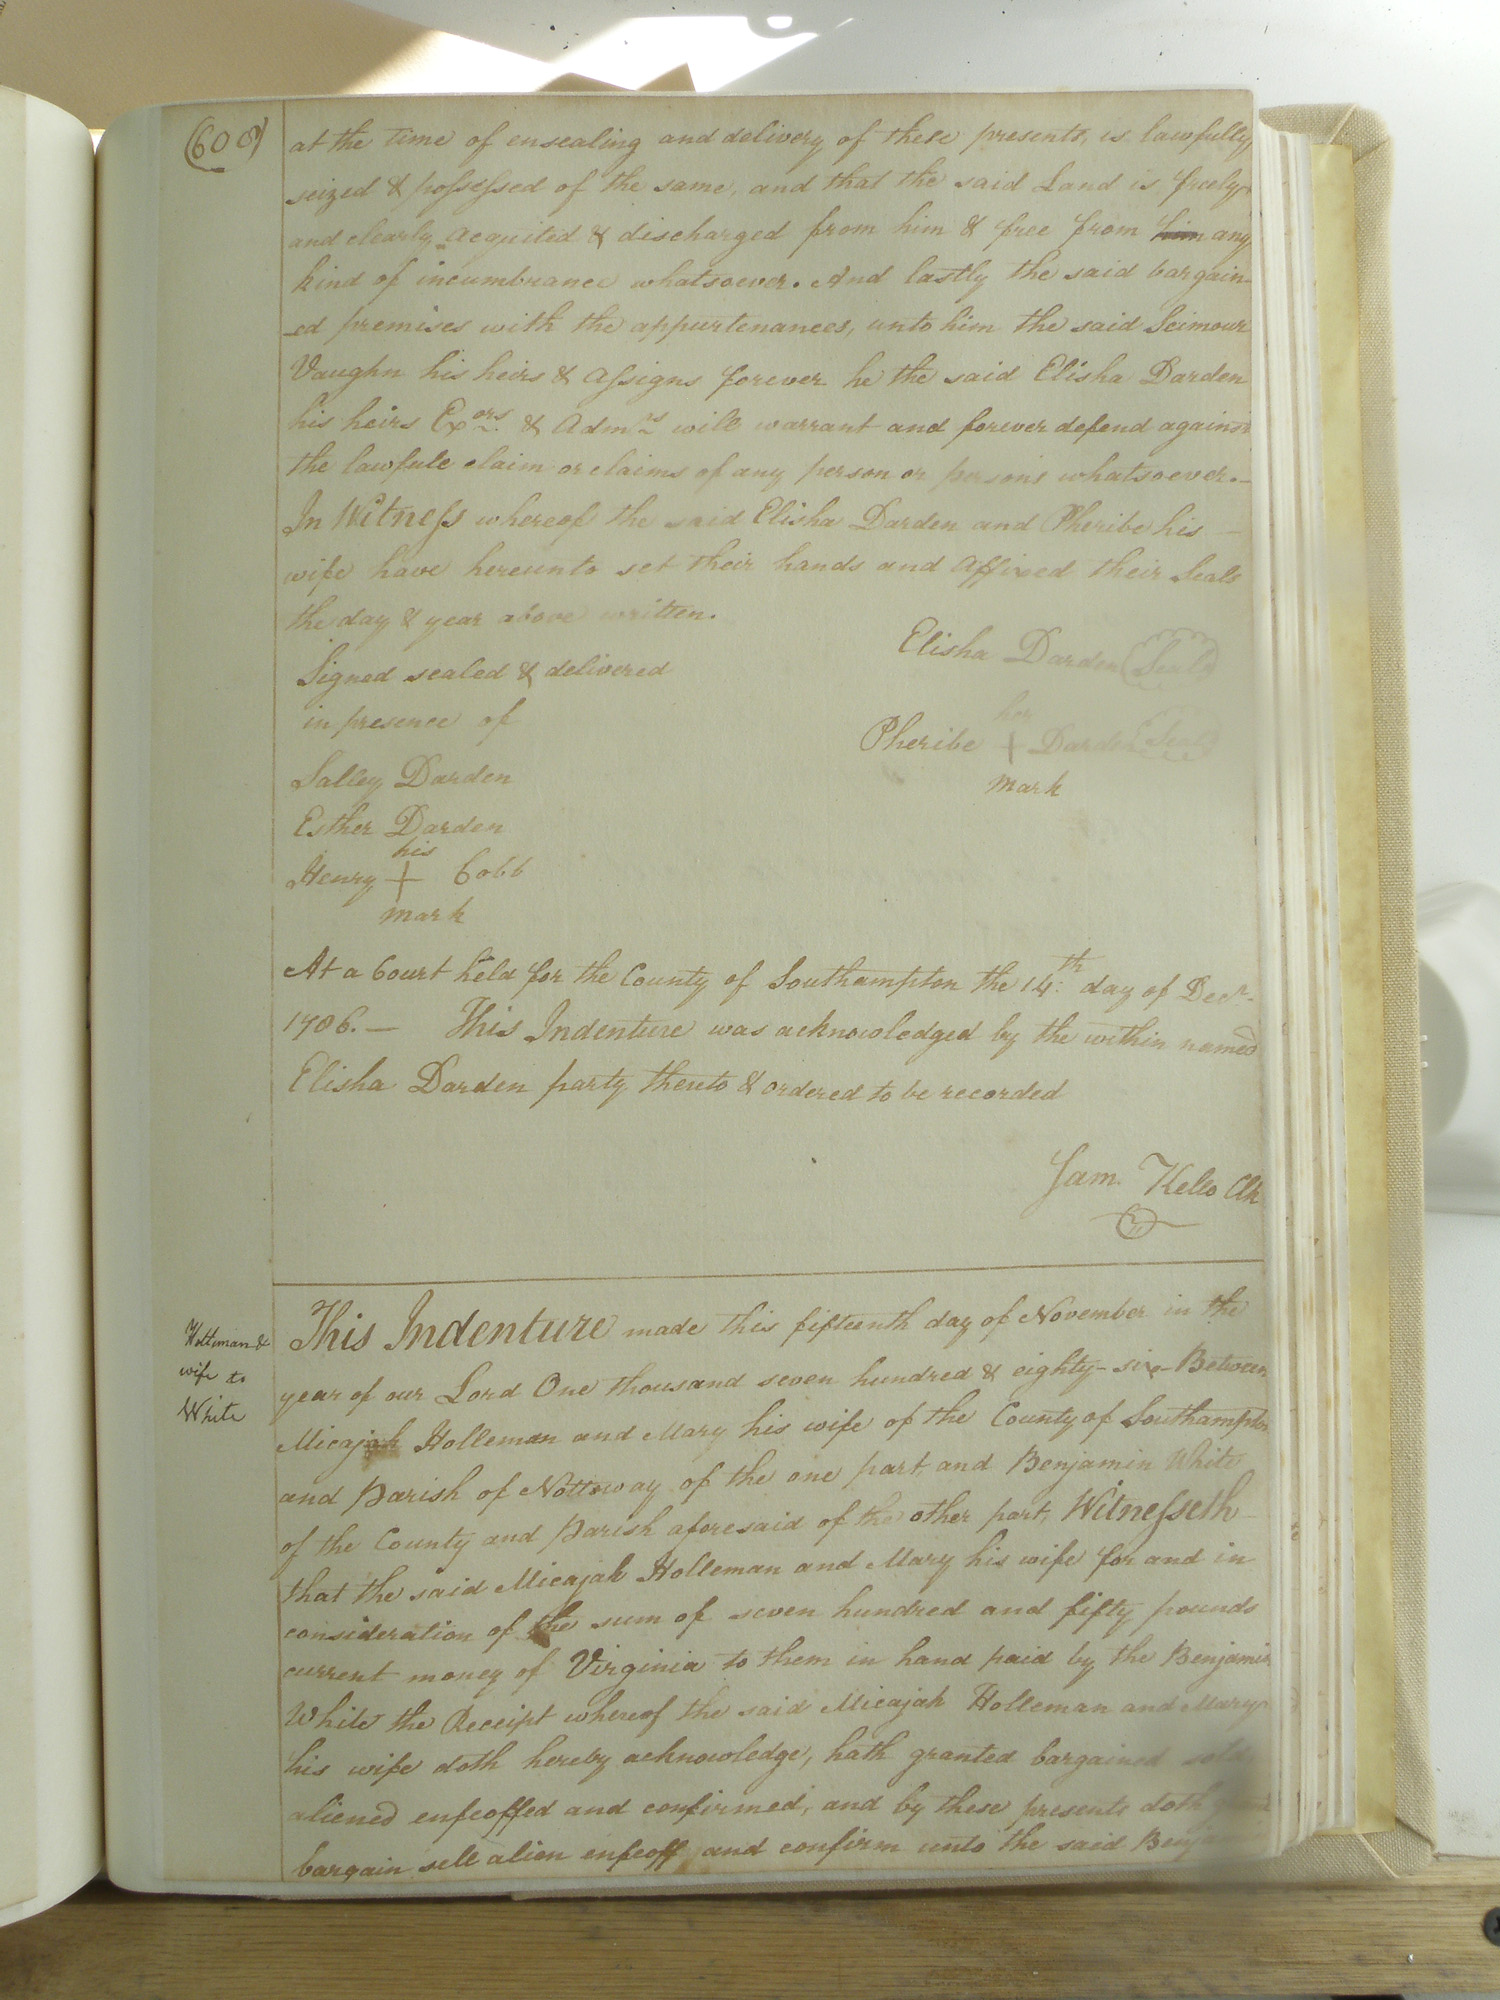 (600)
at the time of ensealing and delivery of these presents, is lawfully
seized & possessed of the same, and that the said Land is freely
and clearly acquited & discharged from him & free from him any
kind of incumbrance whatsoever. And lastly the said bargain-
-ed premises with the appurtenances, unto him the said Seimour
Vaughn his heirs & assigns forever he the said Elisha Darden
his heirs Exors. & Admrs will warrant and forever defend against
the lawfull claim or claims of any person or persons whatsoever.-
In Witness whereof the said Elisha Darden and Pheribe his -
wife have hereunto set their hands and Affixed their Seals
the day & year above written.
Elisha Darden (Seal)
Signed sealed & delivered
in presence of
her
Pheribe + Darden (Seal)
mark
Salley Darden
Esther Darden
his
Henry + Cobb
mark
At a Court held for the County of Southampton the 14th day of Decr.
1786.- This Indenture was acknowledged by the within named
Elisha Darden party thereto & ordered to be recorded
Sam. Kello Clk
Holliman &
wife to
White
This Indenture made this fifteenth day of November in the
year of our Lord One thousand seven hundred & eighty-six- Between
Micajah Holleman and Mary his wife of the County of Southampton
and Parish of Nottoway of the one part, and Benjamin White
of the County and Parish aforesaid of the other part, Witnesseth
that the said Micajah Holleman and Mary his wife for and in
consideration of the sum of seven hundred and fifty pounds
current money of Virginia to them in hand paid by the Benjamin
White the Receipt whereof the said Micajah Holleman and Mary
his wife doth hereby acknowledge, hath granted bargained sold
aliened enfeoffed and confirmed, and by these presents doth
bargain sell alien enfeoff and confirm unto the said